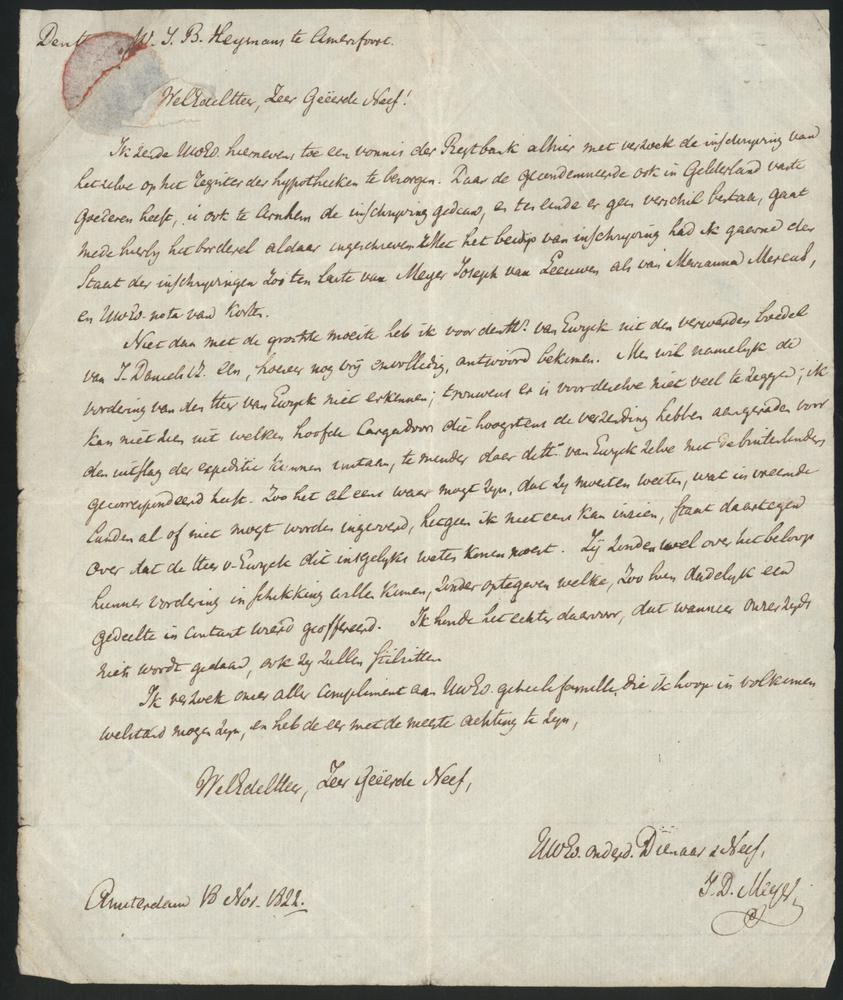 Den W. J. B. Heymans te Amersfoort.
WelEdelHeer, Zeer Geëerde Neef!
Ik zende UwEd. hiernevens toe een vonnis der Regtbank alhier met verzoek de inschryving van
hetzelve op het register der hypotheeken te bezorgen. Daar de gecondemneerde ook in Gelderland vaste
goederen heeft, is ook te Arnhem de inschryving gedaan, en ten einde er geen verschil bestaa, gaat
mede hierby het borderel aldaar ingeschreven. Met het bewys van inschryving had ik gaarne den
Staat der inschryvingen zoo ten laste van Meyer Joseph van Leeuwen als van Marianna Marcus,
en UwEd. nota van kosten.
Niet dan met de grootste moeite heb ik voor den Hr. van Ewyck uit den verwarden boedel
van J. Daniels een, hoewel nog vry onvolledig, antwoord bekomen. Men wil namelyk de
vordering van den Heer van Ewyck niet erkennen; trouwens er is voor dezelve niet veel te zeggen; ik
kan niet zien uit welken hoofde Cargadoors die hoogstens de verzending hebben aangeraden voor
den uitslag der expeditie kunnen instaan, te minder daar de Hr. van Ewyck zelve met de buitenlanders
gecorrespondeerd heeft. Zoo het al eens waar mogt zyn, dat zy moesten weeten, wat in vreemde
landen al of niet mogt worden ingevoerd, hetgeen ik niet eens kan inzien, staat daartegen
over dat de Heer v. Ewyck dit insgelyks weten konen moest. Zy zouden wel over het beloop
hunner vordering in schikking willen komen, zonder optegeven welke, zoo hun dadelyk een
gedeelte in contant wierd geoffereerd. Ik houde het echter daarvoor, dat wanneer onzerzyds
niets wordt gedaan, ook zy zullen stilzitten.
Ik verzoek onzer aller compliment aan UwEd. geheele familie, die ik hoop in volkomen
welstand mogen zyn, en heb de eer met de meeste achting te zyn,
WelEdelHeer, Zeer Geëerde Neef,
UwEd. onderd. Dienaar & Neef,
J. D. Meyer
Amsterdam 18 Nov. 1822.